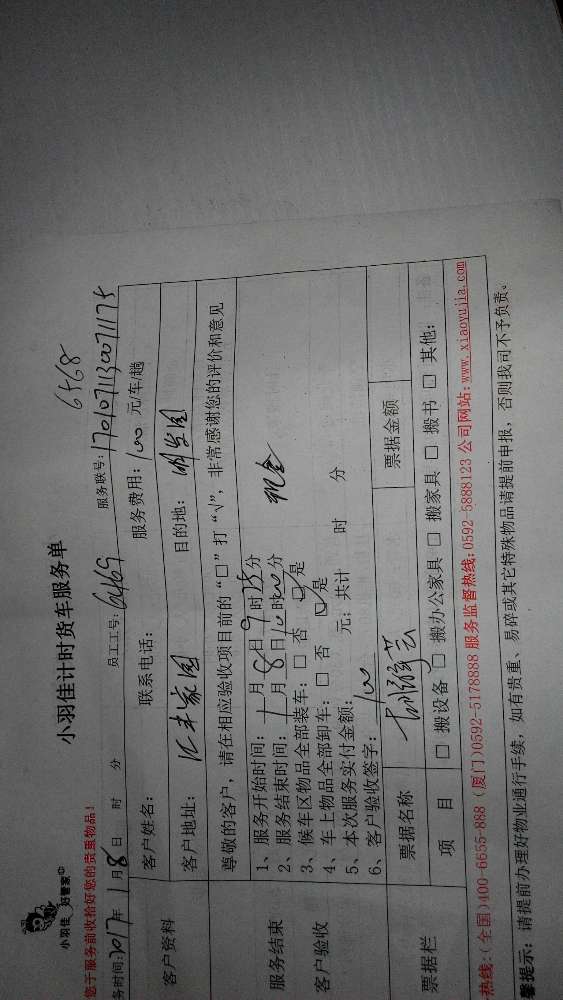 小羽佳 好管家
小羽佳计时货车服务单
6468
您于服务前收拾好您的贵重物品!
务时间: 2017年 1月 8日 时 分 员工工号: 6469 服务联号: 1701071130071175
客户资料
客户姓名: 联系电话: 服务费用: 100 元/车/趟
客户地址: 汇丰家园 目的地:
尊敬的客户, 请在相应验收项目前的“□”打“√”, 非常感谢您的评价和意见
服务结束
客户验收
1、服务开始时间: 1月8日9时25分
2、服务结束时间: 1月8日10时00分 现金
3、候车区物品全部装车: □ 否 ☑ 是
4、车上物品全部卸车: □ 否 ☑ 是
5、本次服务实付金额: 100 元; 共计 时 分
6、客户验收签字:
票据栏
票据名称 票据金额
项 目 □ 搬设备 □ 搬办公家具 □ 搬家具 □ 搬书 □ 其他:
热线: (全国)400-6655-888 (厦门)0592-5178888 服务监督热线: 0592-5888123 公司网站: www.xiaoyujia.com
馨提示: 请提前办理好物业通行手续, 如有贵重、易碎或其它特殊物品请提前申报, 否则我司不予负责。